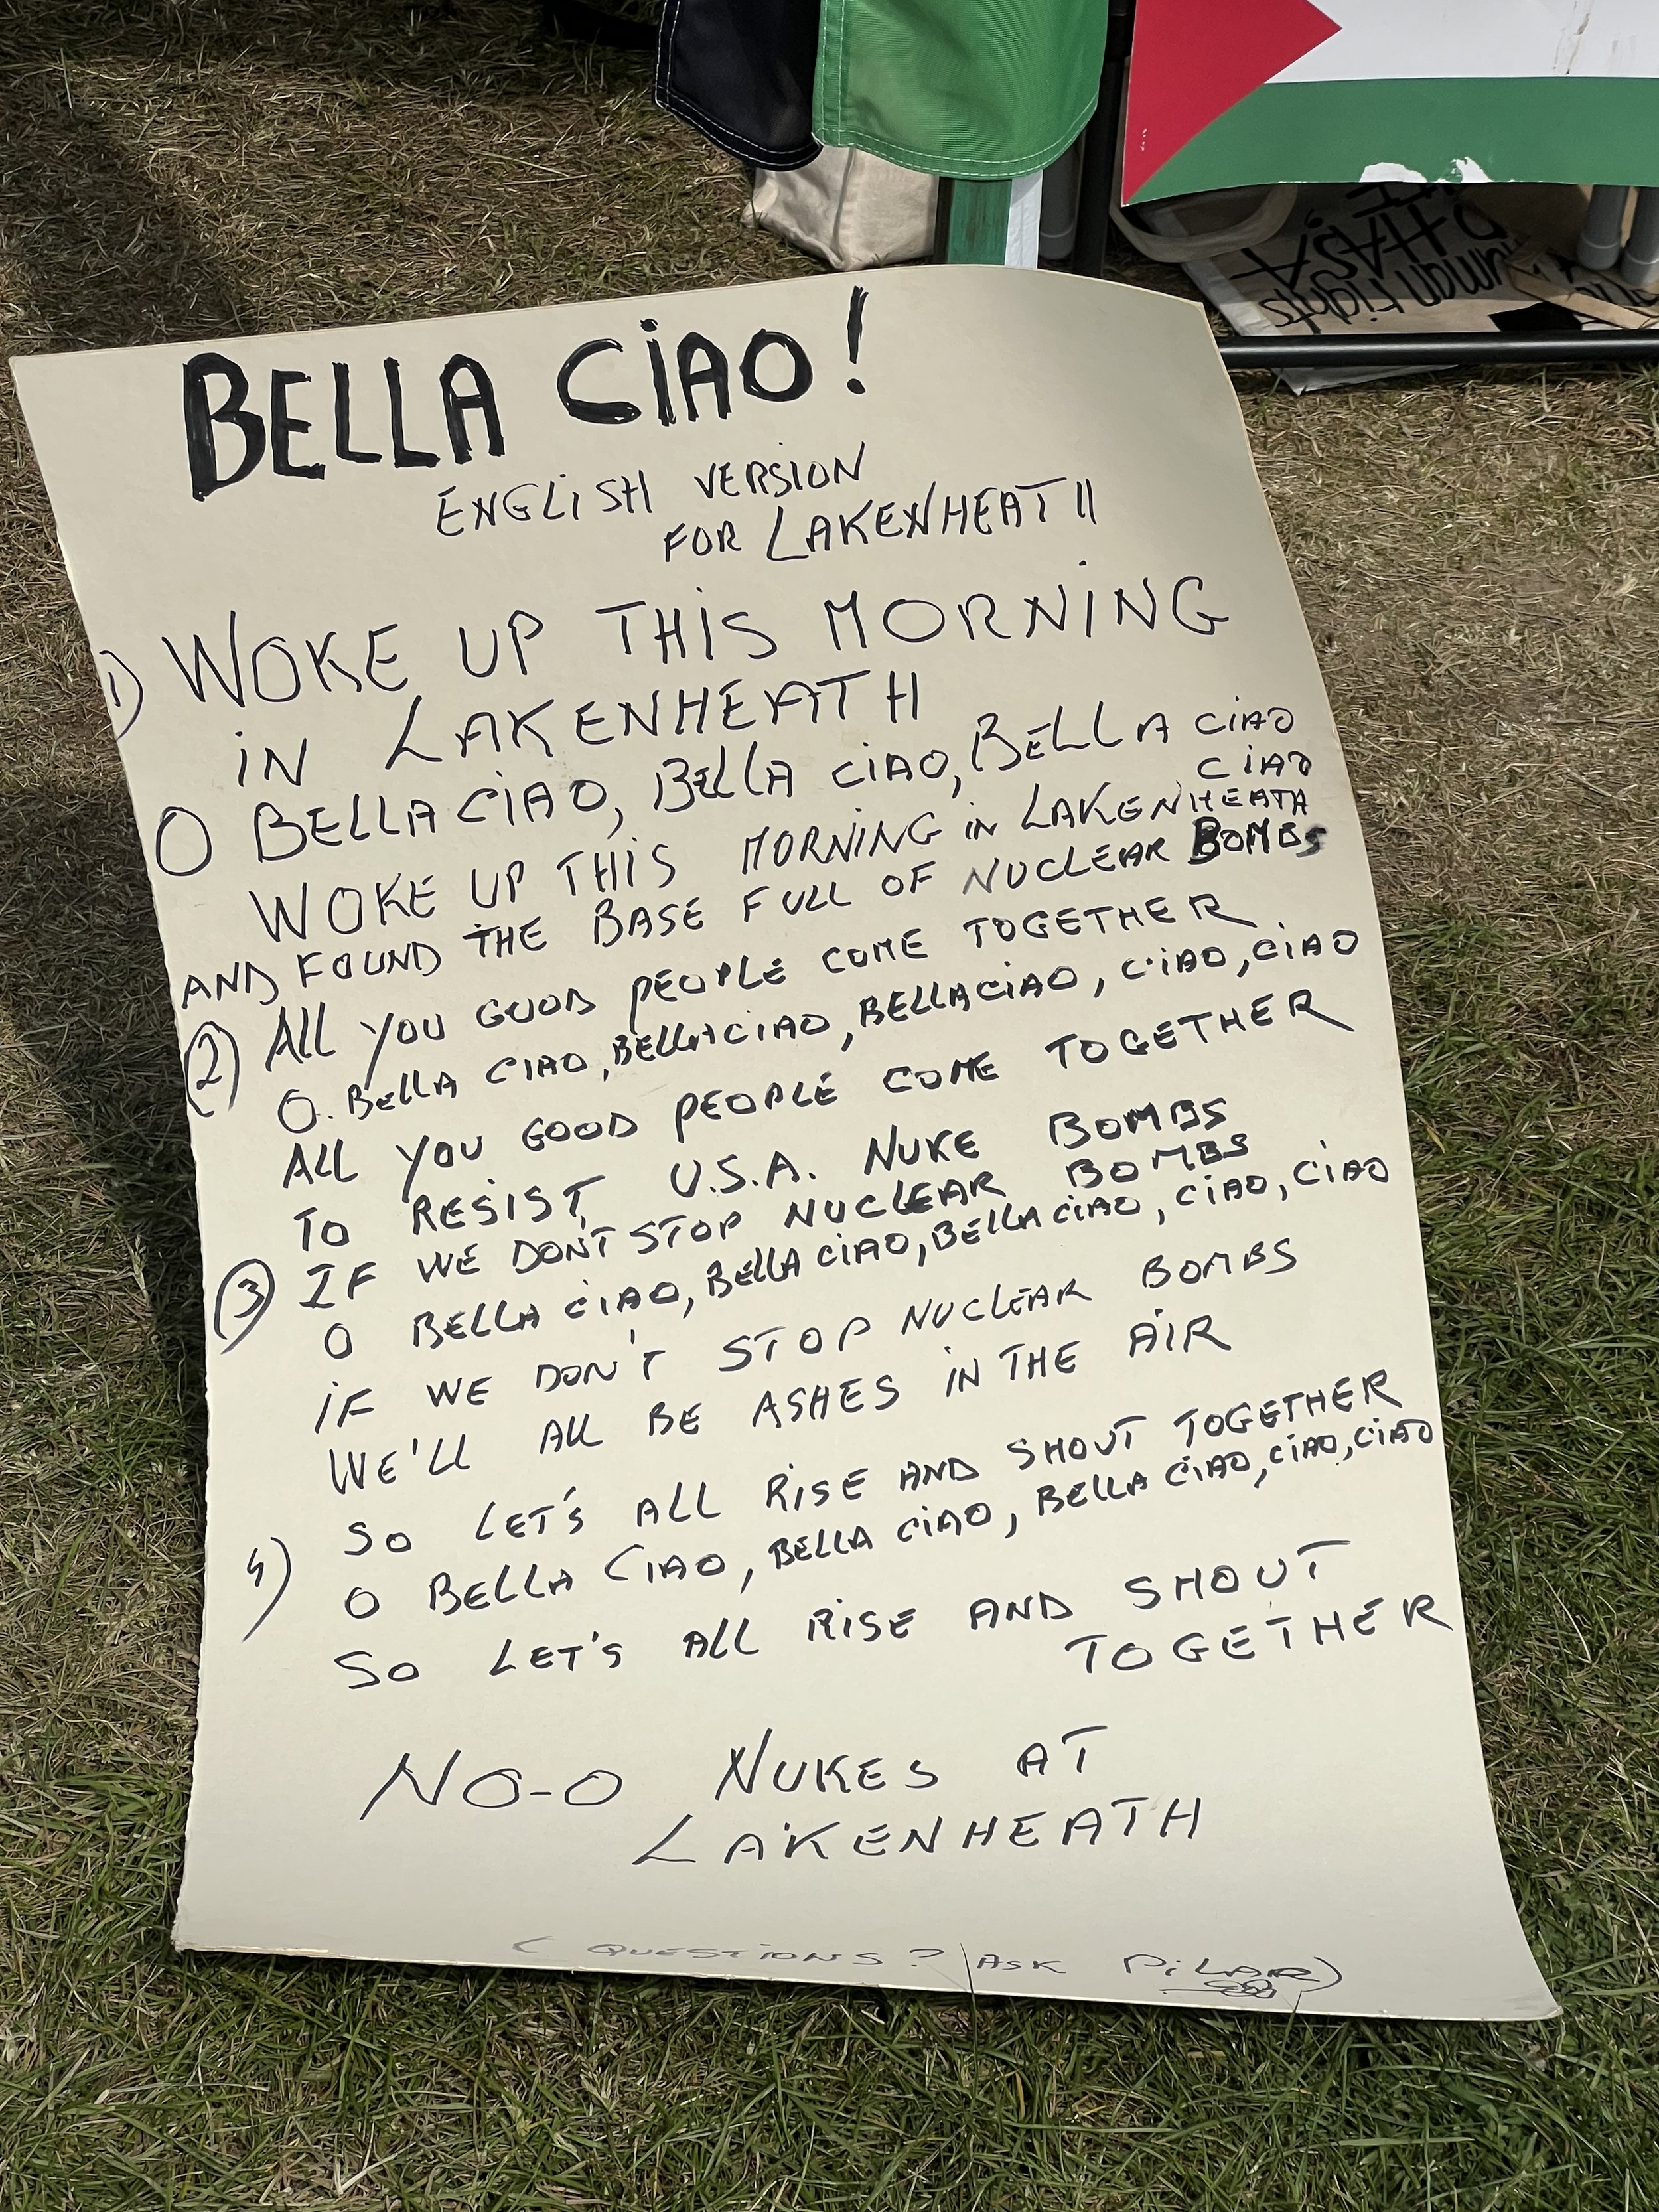 BELLA CIAO!
ENGLISH VERSION
FOR LAKENHEATH
1) WOKE UP THIS MORNING
IN LAKENHEATH
O BELLA CIAO, BELLA CIAO, BELLA CIAO
CIAO
WOKE UP THIS MORNING IN LAKENHEATH
AND FOUND THE BASE FULL OF NUCLEAR BOMBS
2) ALL YOU GOOD PEOPLE COME TOGETHER
O. BELLA CIAO, BELLA CIAO, BELLA CIAO, CIAO, CIAO
ALL YOU GOOD PEOPLE COME TOGETHER
TO RESIST U.S.A. NUKE BOMBS
3) IF WE DON'T STOP NUCLEAR BOMBS
O BELLA CIAO, BELLA CIAO, BELLA CIAO, CIAO, CIAO
IF WE DON'T STOP NUCLEAR BOMBS
WE'LL ALL BE ASHES IN THE AIR
4) SO LET'S ALL RISE AND SHOUT TOGETHER
O BELLA CIAO, BELLA CIAO, BELLA CIAO, CIAO, CIAO
SO LET'S ALL RISE AND SHOUT
TOGETHER
NO-O NUKES AT
LAKENHEATH
(QUESTIONS? ASK PILAR)
Human Rights